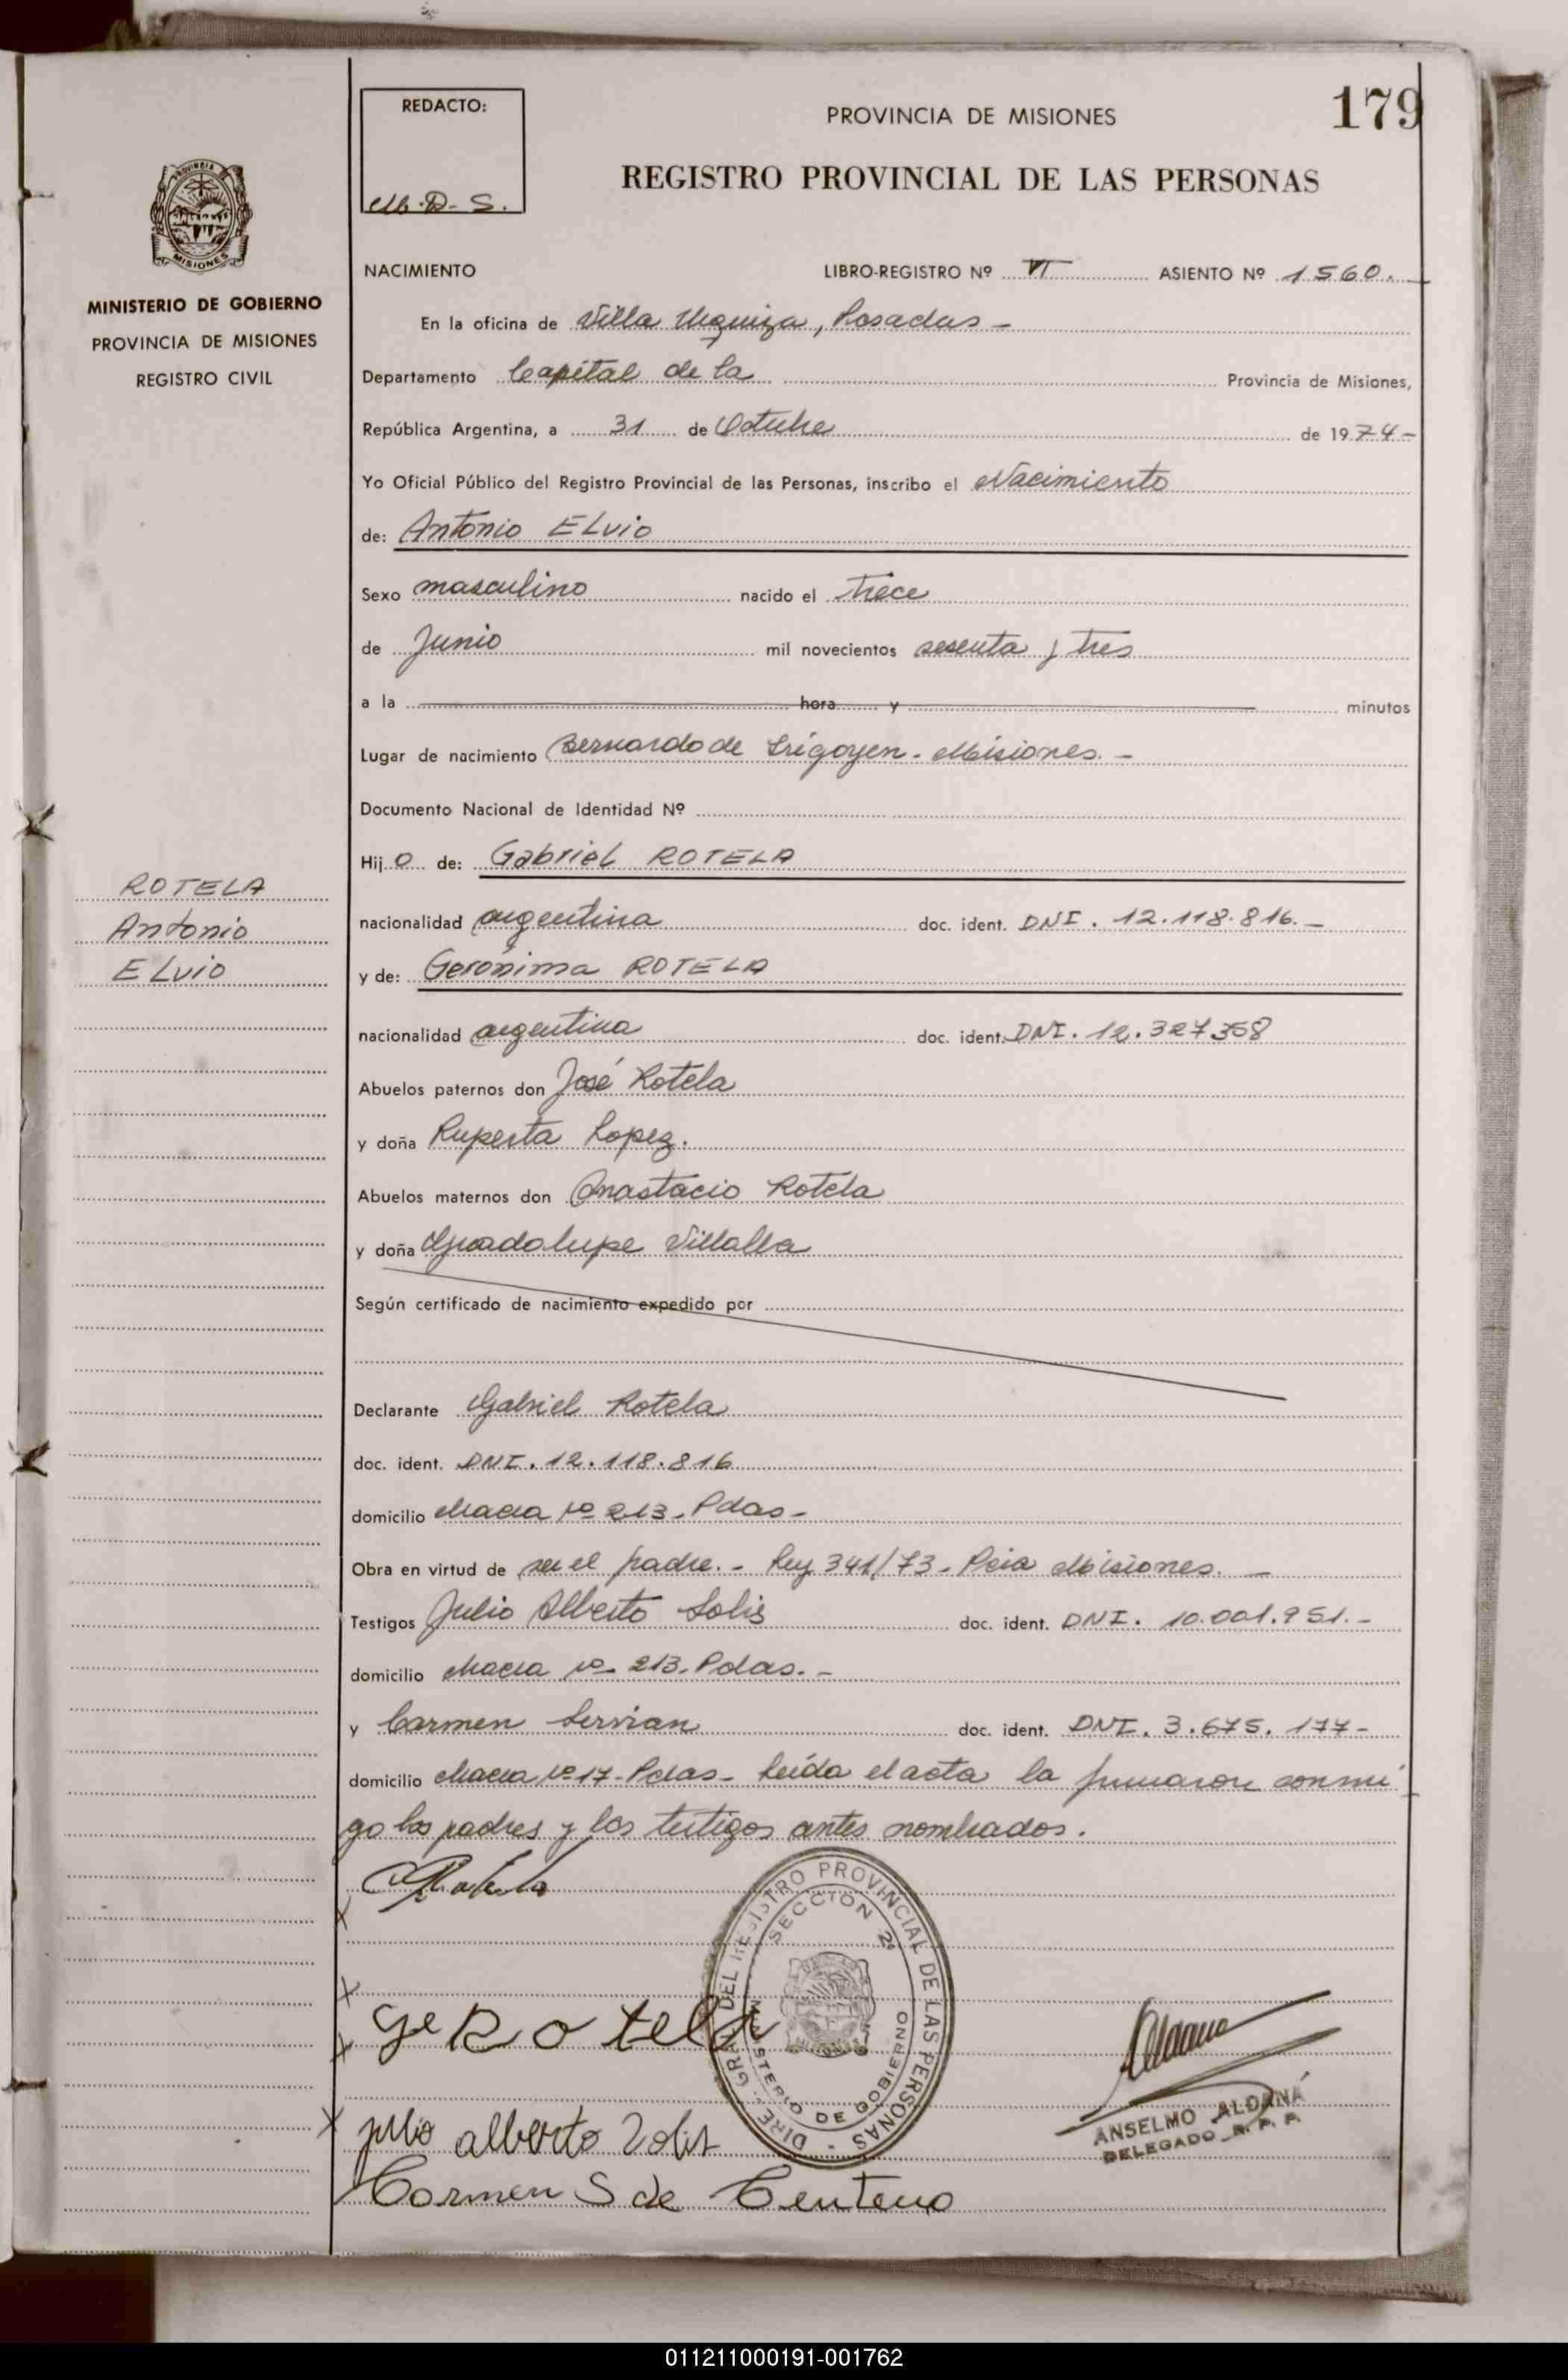 179
REDACTO:
M.D.S.
PROVINCIA DE MISIONES
REGISTRO PROVINCIAL DE LAS PERSONAS
PROVINCIA DE
MISIONES
MINISTERIO DE GOBIERNO
PROVINCIA DE MISIONES
REGISTRO CIVIL
NACIMIENTO LIBRO-REGISTRO Nº VI ASIENTO Nº 1560.
En la oficina de Villa Urquiza, Posadas -
Departamento Capital de la Provincia de Misiones,
República Argentina, a 31 de Octubre de 1974-
Yo Oficial Público del Registro Provincial de las Personas, inscribo el Nacimiento
de: Antonio ELVIO
Sexo masculino nacido el trece
de Junio mil novecientos sesenta y tres
a la hora y minutos
Lugar de nacimiento Bernardo de Irigoyen - Misiones. -
Documento Nacional de Identidad Nº
Hijo de: Gabriel ROTELA
ROTELA
Antonio
ELVIO
nacionalidad argentina doc. ident. DNI. 12.118.816.-
y de: Gerónima ROTELA
nacionalidad argentina doc. ident. DNI. 12.327.358
Abuelos paternos don José Rotela
y doña Ruperta Lopez.
Abuelos maternos don Anastacio Rotela
y doña Guadalupe Villalba
Según certificado de nacimiento expedido por
Declarante Gabriel Rotela
doc. ident. DNI. 12.118.816
domicilio Nº 213. Pdas-
Obra en virtud de ser el padre. - Ley 341/73 - Pcia Misiones. -
Testigos Julio Alberto Solis doc. ident. DNI. 10.001.951.-
domicilio Nº 213. Pdas. -
y Carmen Servian doc. ident. DNI. 3.675.177-
domicilio Nº 17-Pdas- Leída el acta la firmaron conmi
go los padres y los testigos antes nombrados.
Ge Rotela
julio alberto Zolis
Carmen S de Centeno
DIRE. GRAL. DEL REGISTRO PROVINCIAL DE LAS PERSONAS
SECCION 2ª
MINISTERIO DE GOBIERNO
ANSELMO ALDANA
DELEGADO R. P. P.
011211000191-001762